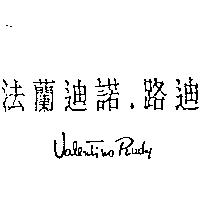 法蘭迪諾．路迪
Valentino Rudy